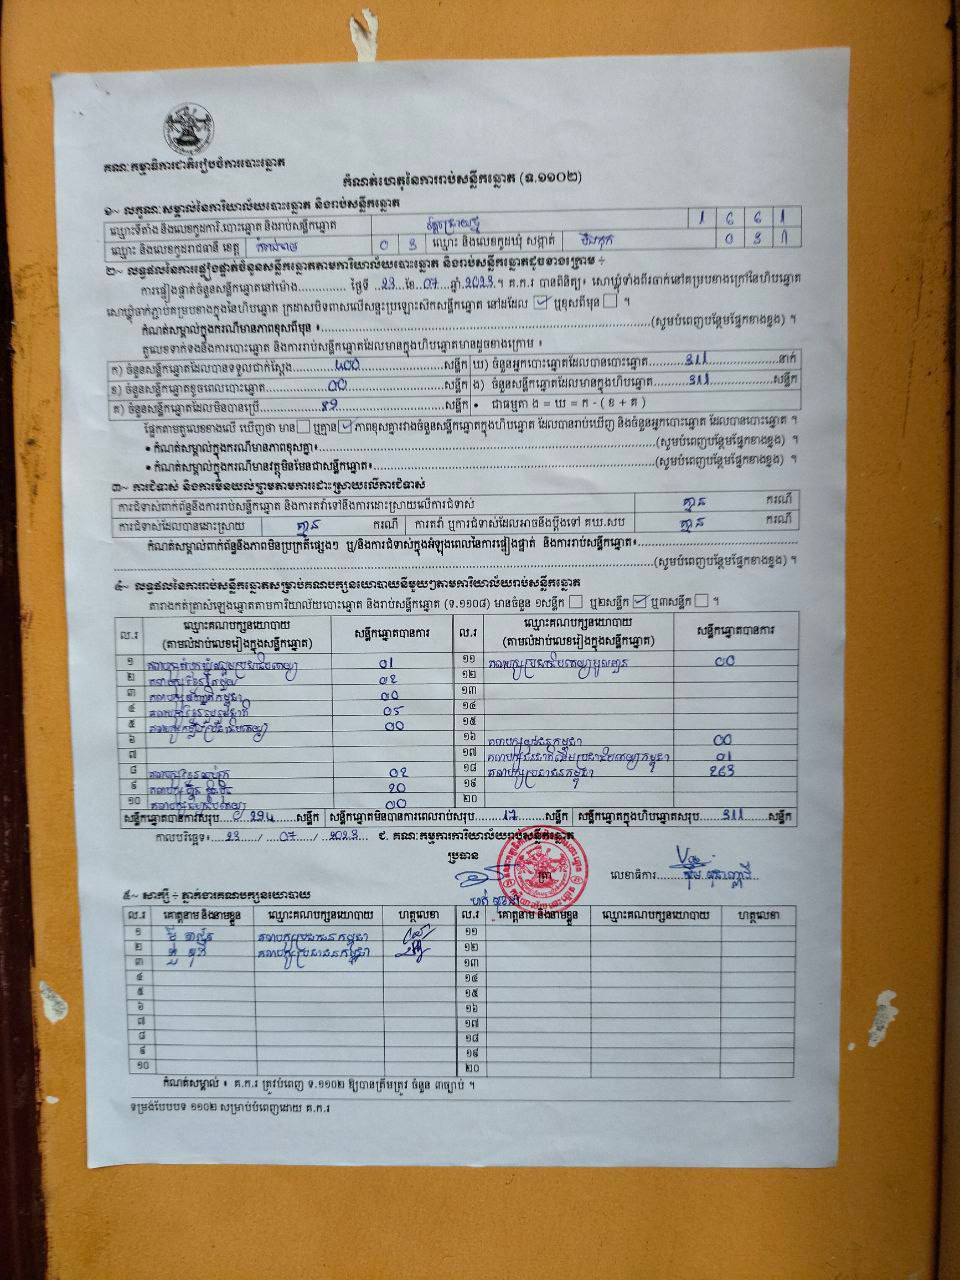 គណៈកម្មាធិការជាតិរៀបចំការបោះឆ្នោត
កំណត់ហេតុនៃការរាប់សន្លឹកឆ្នោត (ទ.១១០២)
១~ លក្ខណៈសម្គាល់នៃការិយាល័យបោះឆ្នោត និងរាប់សន្លឹកឆ្នោត
ឈ្មោះទីតាំង និងលេខកូដការិ.បោះឆ្នោត និងរាប់សន្លឹកឆ្នោត 1 6 6 1
ឈ្មោះ និងលេខកូដរាជធានី ខេត្ត 0 3 ឈ្មោះ និងលេខកូដឃុំ សង្កាត់
២~ លទ្ធផលនៃការផ្ទៀងផ្ទាត់ចំនួនសន្លឹកឆ្នោតតាមការិយាល័យបោះឆ្នោត និងរាប់សន្លឹកឆ្នោតដូចខាងក្រោម ÷
ការផ្ទៀងផ្ទាត់ចំនួនសន្លឹកឆ្នោតនៅម៉ោង.............. ថ្ងៃទី ..23...ខែ..07...ឆ្នាំ.2023.។ គ.ក.រ បានពិនិត្យ៖ សោឃ្លុំទាំងពីរចាក់នៅគម្របខាងក្រៅនៃហិបឆ្នោត
សោឃ្លុំចាក់ភ្ជាប់គម្របខាងក្នុងនៃហិបឆ្នោត ក្រដាសបិទពាសលើសន្ទះប្រឡោះស៊កសន្លឹកឆ្នោត នៅដដែល ☑ ឬខុសពីមុន ☐ ។
កំណត់សម្គាល់ក្នុងករណីមានភាពខុសពីមុន ៖..........(សូមបំពេញបន្ថែមផ្នែកខាងខ្នង) ។
តួលេខទាក់ទងនឹងការបោះឆ្នោត និងការរាប់សន្លឹកឆ្នោតដែលមានក្នុងហិបឆ្នោតមានដូចខាងក្រោម ៖
ក) ចំនួនសន្លឹកឆ្នោតដែលបានទទួលជាក់ស្តែង......400......សន្លឹក ឃ) ចំនួនអ្នកបោះឆ្នោតដែលបានបោះឆ្នោត......311......នាក់
ខ) ចំនួនសន្លឹកឆ្នោតខូចពេលបោះឆ្នោត......00......សន្លឹក ង) ចំនួនសន្លឹកឆ្នោតដែលមានក្នុងហិបឆ្នោត......311......សន្លឹក
គ) ចំនួនសន្លឹកឆ្នោតដែលមិនបានប្រើ......89......សន្លឹក • ជាធម្មតា ង = ឃ = ក - ( ខ + គ )
ផ្អែកតាមតួលេខខាងលើ ឃើញថា មាន ☐ ឬគ្មាន ☑ ភាពខុសគ្នារវាងចំនួនសន្លឹកឆ្នោតក្នុងហិបឆ្នោត ដែលបានរាប់ឃើញ និងចំនួនអ្នកបោះឆ្នោត ដែលបានបោះឆ្នោត ។
• កំណត់សម្គាល់ក្នុងករណីមានភាពខុសគ្នា៖..........(សូមបំពេញបន្ថែមផ្នែកខាងខ្នង) ។
• កំណត់សម្គាល់ក្នុងករណីមានវត្ថុមិនមែនជាសន្លឹកឆ្នោត៖..........(សូមបំពេញបន្ថែមផ្នែកខាងខ្នង) ។
៣~ ការជំទាស់ និងការមិនយល់ព្រមតាមការដោះស្រាយលើការជំទាស់
ការជំទាស់ពាក់ព័ន្ធនឹងការរាប់សន្លឹកឆ្នោត និងការតវ៉ាទៅនឹងការដោះស្រាយលើការជំទាស់ គ្មាន ករណី
ការជំទាស់ដែលបានដោះស្រាយ គ្មាន ករណី ការតវ៉ា ឬការជំទាស់ដែលអាចនឹងប្តឹងទៅ គឃ.សប គ្មាន ករណី
កំណត់សម្គាល់ពាក់ព័ន្ធនឹងភាពមិនប្រក្រតីផ្សេងៗ ឬ/និងការជំទាស់ក្នុងអំឡុងពេលនៃការផ្ទៀងផ្ទាត់ និងការរាប់សន្លឹកឆ្នោត៖..........
..........(សូមបំពេញបន្ថែមផ្នែកខាងខ្នង) ។
៤~ លទ្ធផលនៃការរាប់សន្លឹកឆ្នោតសម្រាប់គណបក្សនយោបាយនីមួយៗតាមការិយាល័យរាប់សន្លឹកឆ្នោត
តារាងកត់ត្រាសំឡេងឆ្នោតតាមការិយាល័យបោះឆ្នោត និងរាប់សន្លឹកឆ្នោត (ទ.១១០៨) មានចំនួន ១សន្លឹក ☐ ឬ២សន្លឹក ☑ ឬ៣សន្លឹក ☐ ។
ល.រ ឈ្មោះគណបក្សនយោបាយ (តាមលំដាប់លេខរៀងក្នុងសន្លឹកឆ្នោត) សន្លឹកឆ្នោតបានការ ល.រ ឈ្មោះគណបក្សនយោបាយ (តាមលំដាប់លេខរៀងក្នុងសន្លឹកឆ្នោត) សន្លឹកឆ្នោតបានការ
១ 01 ១១ 00
២ 02 ១២
៣ 00 ១៣
៤ 05 ១៤
៥ 00 ១៥
៦ ១៦ គណបក្សយុវជនកម្ពុជា 00
៧ ១៧ 01
៨ 02 ១៨ គណបក្សប្រជាជនកម្ពុជា 263
៩ 20 ១៩
១០ 00 ២០
សន្លឹកឆ្នោតបានការសរុប......294......សន្លឹក សន្លឹកឆ្នោតមិនបានការពេលរាប់សរុប......17......សន្លឹក សន្លឹកឆ្នោតក្នុងហិបឆ្នោតសរុប......311......សន្លឹក
កាលបរិច្ឆេទ៖...23.../...07.../...2023... ជ. គណៈកម្មការការិយាល័យរាប់សន្លឹកឆ្នោត
ប្រធាន
ត្រា
លេខាធិការ
៥~ សាក្សី ÷ ភ្នាក់ងារគណបក្សនយោបាយ
ល.រ គោត្តនាម និងនាមខ្លួន ឈ្មោះគណបក្សនយោបាយ ហត្ថលេខា ល.រ គោត្តនាម និងនាមខ្លួន ឈ្មោះគណបក្សនយោបាយ ហត្ថលេខា
១ គណបក្សប្រជាជនកម្ពុជា ១១
២ គណបក្សប្រជាជនកម្ពុជា ១២
៣ ១៣
៤ ១៤
៥ ១៥
៦ ១៦
៧ ១៧
៨ ១៨
៩ ១៩
១០ ២០
កំណត់សម្គាល់ ៖ គ.ក.រ ត្រូវបំពេញ ទ.១១០២ ឱ្យបានត្រឹមត្រូវ ចំនួន ៣ច្បាប់ ។
ទម្រង់បែបបទ ១១០២ សម្រាប់បំពេញដោយ គ.ក.រ